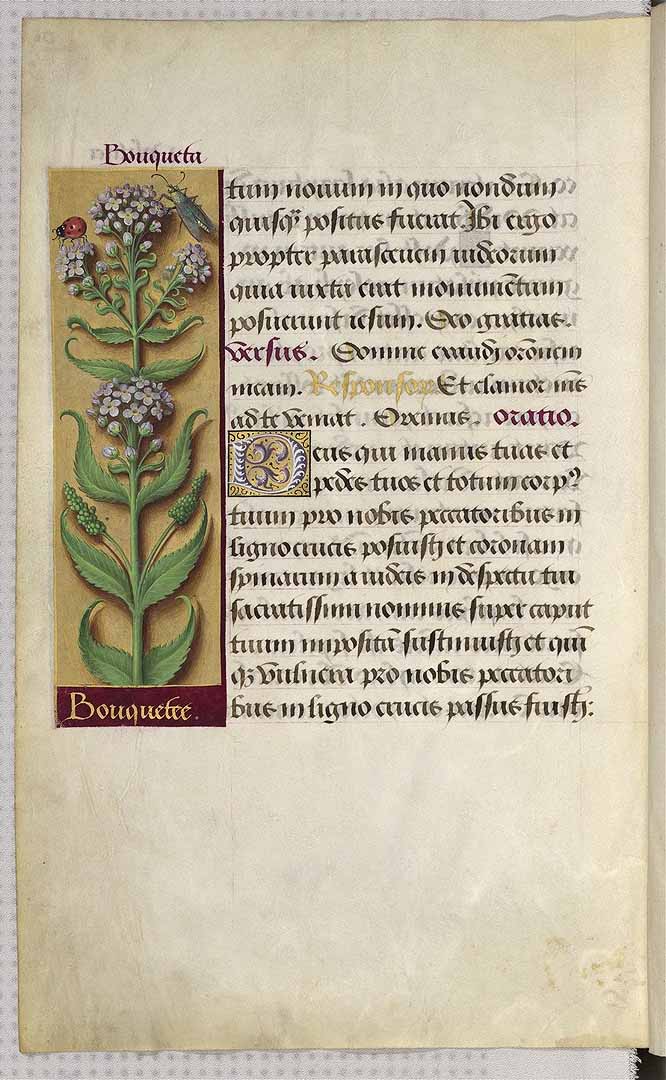 Bouqueta
tum nouum in quo nondum
quisqȝ positus fuerat. Ibi ergo
propter parasceuem iudeorum
quia iuxta erat monumentum
posuerunt iesum. Deo gratias.
Versus. Domine exaudi orōnem
meam. Responsor. Et clamor me9
ad te veniat. Oremus. oratio.
Deus qui manus tuas et
pedes tuos et totum corp9
tuum pro nobis peccatoribus in
ligno crucis posuisti et coronam
spinarum a iudeis in despectu tui
sacratissimi nominis super caput
tuum impositā sustinuisti et quī
qȝ vulnera pro nobis peccatori
bus in ligno crucis passus fuisti:
Bouquetee.